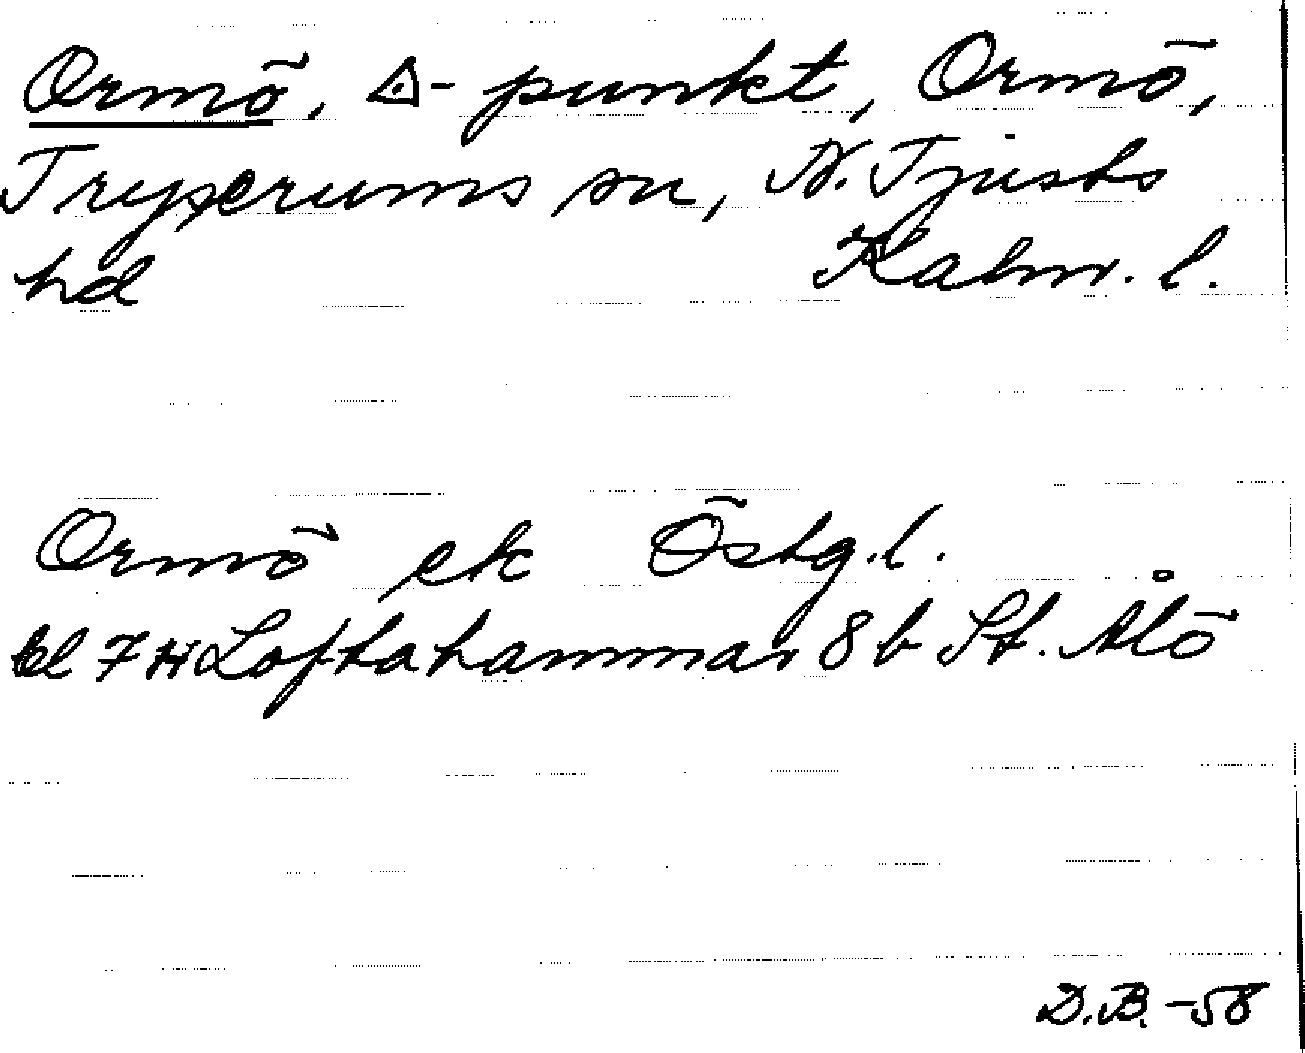 Ormö, △-punkt, Ormö,
Tryserums sn, N. Tjusts
hd Kalm. l.
Ormö ek Östg. l.
bl 7 H Loftahammar 8 b St. Ålö
D.B. -58